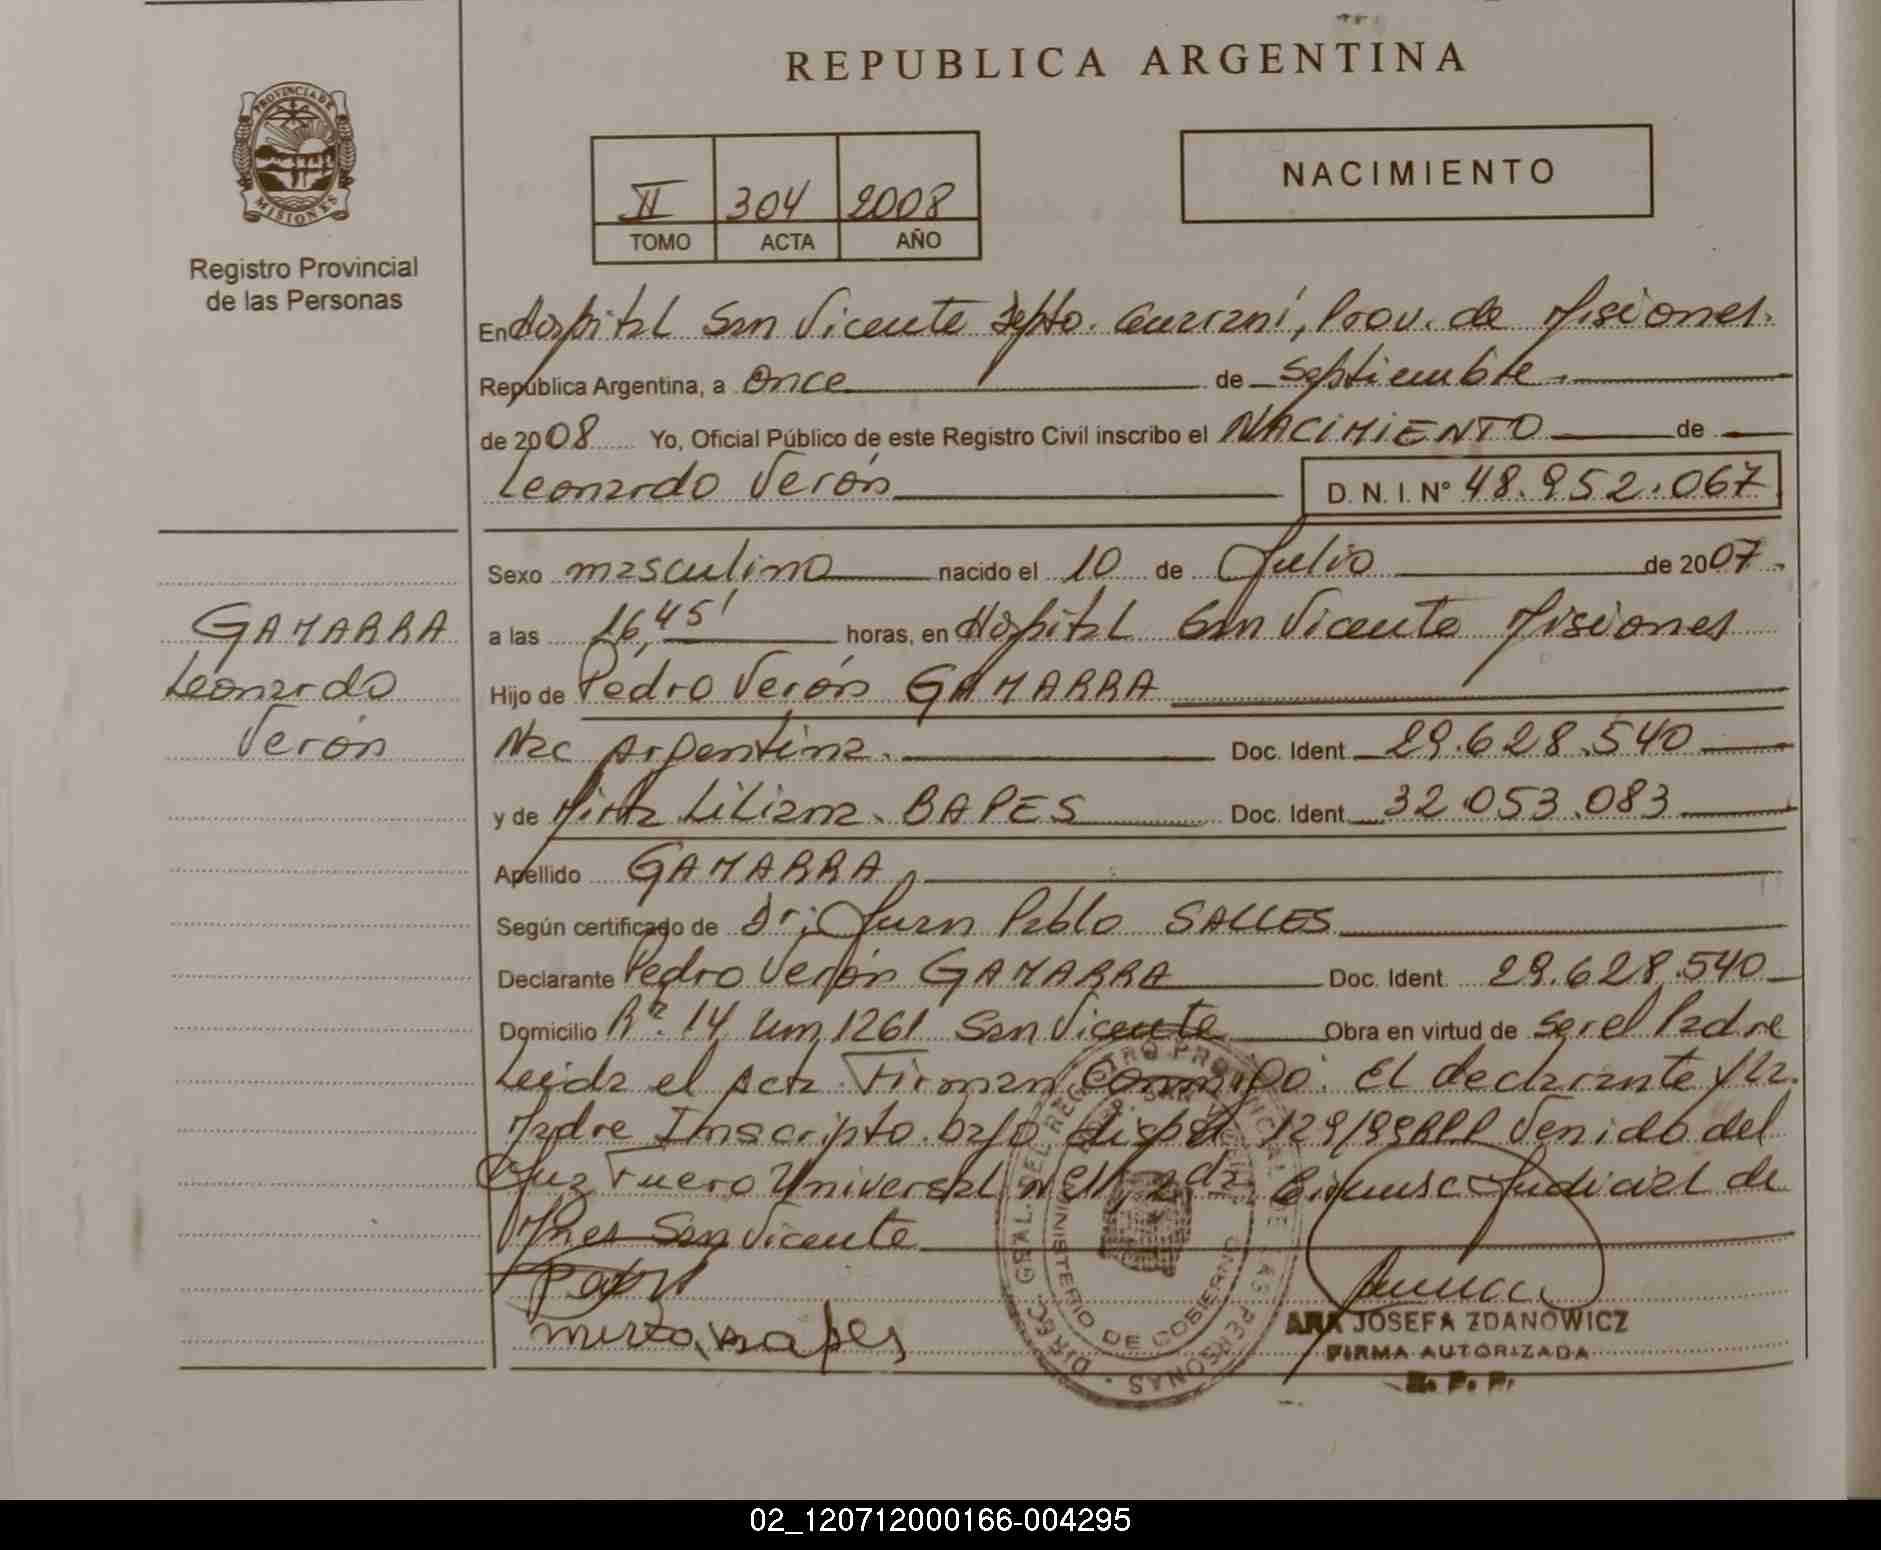 REPUBLICA ARGENTINA
PROVINCIA DE
MISIONES
Registro Provincial
de las Personas
NACIMIENTO
II 304 2008
TOMO ACTA AÑO
En Hospital San Vicente Depto. Guaraní, Prov. de Misiones.
República Argentina, a Once de Septiembre.
de 2008 Yo, Oficial Público de este Registro Civil inscribo el NACIMIENTO de
Leonardo Verón D. N. I. Nº 48.952.067
Sexo masculino nacido el 10 de Julio de 2007.
a las 16,45' horas, en Hospital San Vicente Misiones
Hijo de Pedro Verón GAMARRA
Nac Argentina. Doc. Ident 29.628.540
y de Mirta Liliana. BAPES Doc. Ident 32.053.083
Apellido GAMARRA
Según certificado de Dr; Juan Pablo SALLES
Declarante Pedro Verón GAMARRA Doc. Ident. 29.628.540
Domicilio Rª. 14, Km, 1261 San Vicente Obra en virtud de ser el Padre
Leida el Acta Firman Conmigo. El declarante y la
Madre Inscripto bajo 129/99 RPP Venido del
Juz Fuero Universal Nº 1, 2da Judicial de
Mnes San Vicente
GAMARRA
Leonardo
Verón
mirta bapes
DIREC. GRAL. DEL REGISTRO PROVINCIAL DE LAS PERSONAS
MINISTERIO DE GOBIERNO
ANA JOSEFA ZDANOWICZ
FIRMA AUTORIZADA
R. P. P.
02_120712000166-004295